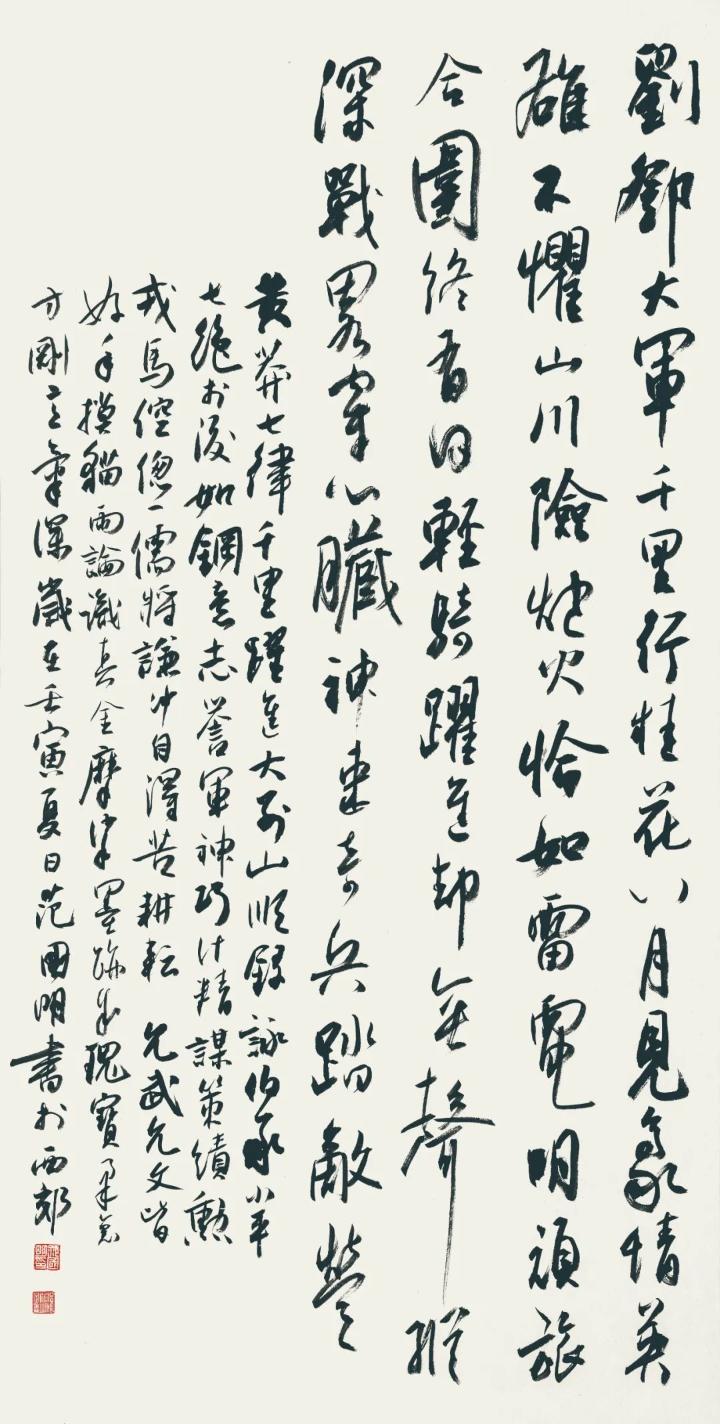 劉鄧大軍千里行桂花八月見豪情英
雄不懼山川險炮火恰如雷電明頑旅
合圍終有日輕騎躍進却無聲縱
深戰略穿心臟神速奇兵踏敵營
黃莽七律千里躍進大別山順錄詠伯承小平
七絕於後如鋼意志譽軍神巧計精謀策績勳
戎馬倥傯一儒將謙沖自苦耕耘允武允文皆
好手摸貓兩論識真金摩挲墨跡成瑰寶
方剛意氣深歲在壬寅夏日范國明書於西郊